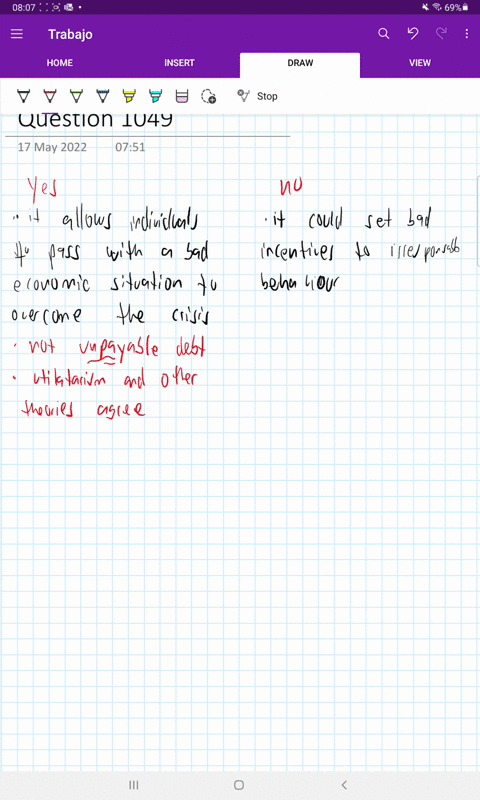 08:07 69%
Trabajo
HOME INSERT DRAW VIEW
Stop
Question 1049
17 May 2022 07:51
Yes
· it allows individuals
to pass with a bad
economic situation to
overcome the crisis
· not unpayable debt
· utilitarism and other
theories agree
no
· it could set bad
incentives to
behaviour